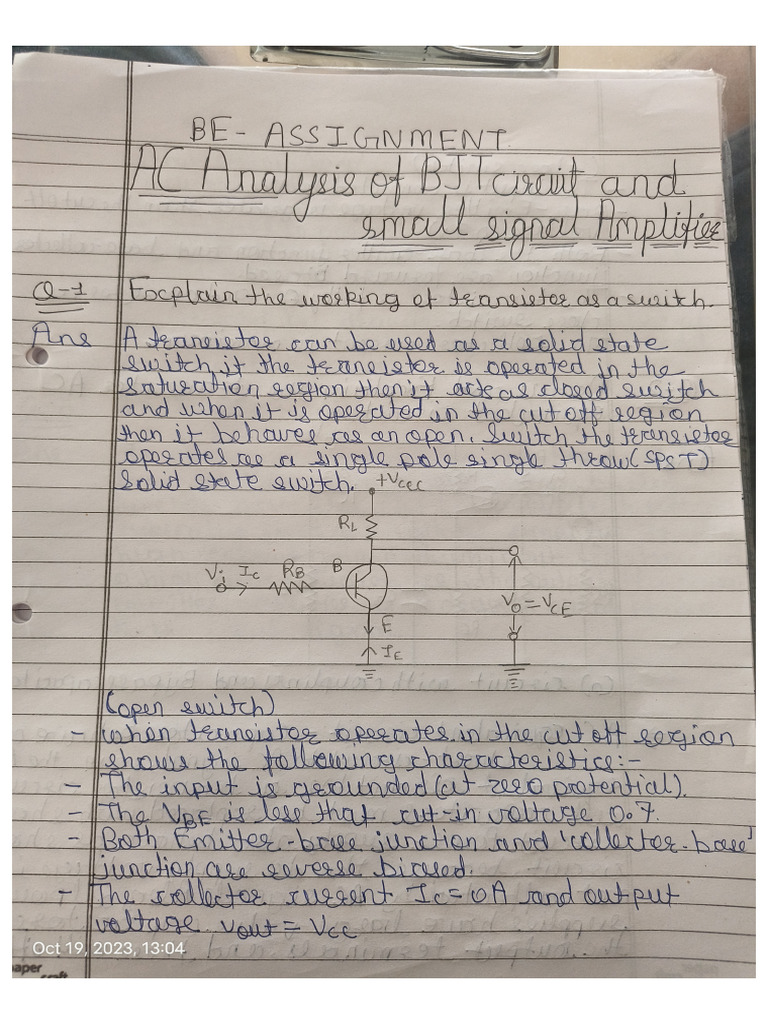 BE- ASSIGNMENT
AC Analysis of BJT circuit and
small signal Amplifier
Q-1 Explain the working of transistor as a switch.
Ans A transistor can be used as a solid state
switch if the transistor is operated in the
saturation region then it acts as closed switch
and when it is operated in the cut off region
then it behaves as an open. Switch the transistor
operates as a single pole single throw (SPST)
solid state switch.
+Vcc
RL
Vi Ic RB B
E
IE
Vo = VCE
(open switch)
- when transistor operates in the cut off region
shows the following characteristics:-
- The input is grounded (at zero potential).
- The VBE is less that cut-in voltage 0.7.
- Both Emitter-base junction and 'collector-base'
junction are reverse biased.
- The collector current Ic = 0A and output
voltage vout = Vcc
Oct 19, 2023, 13:04